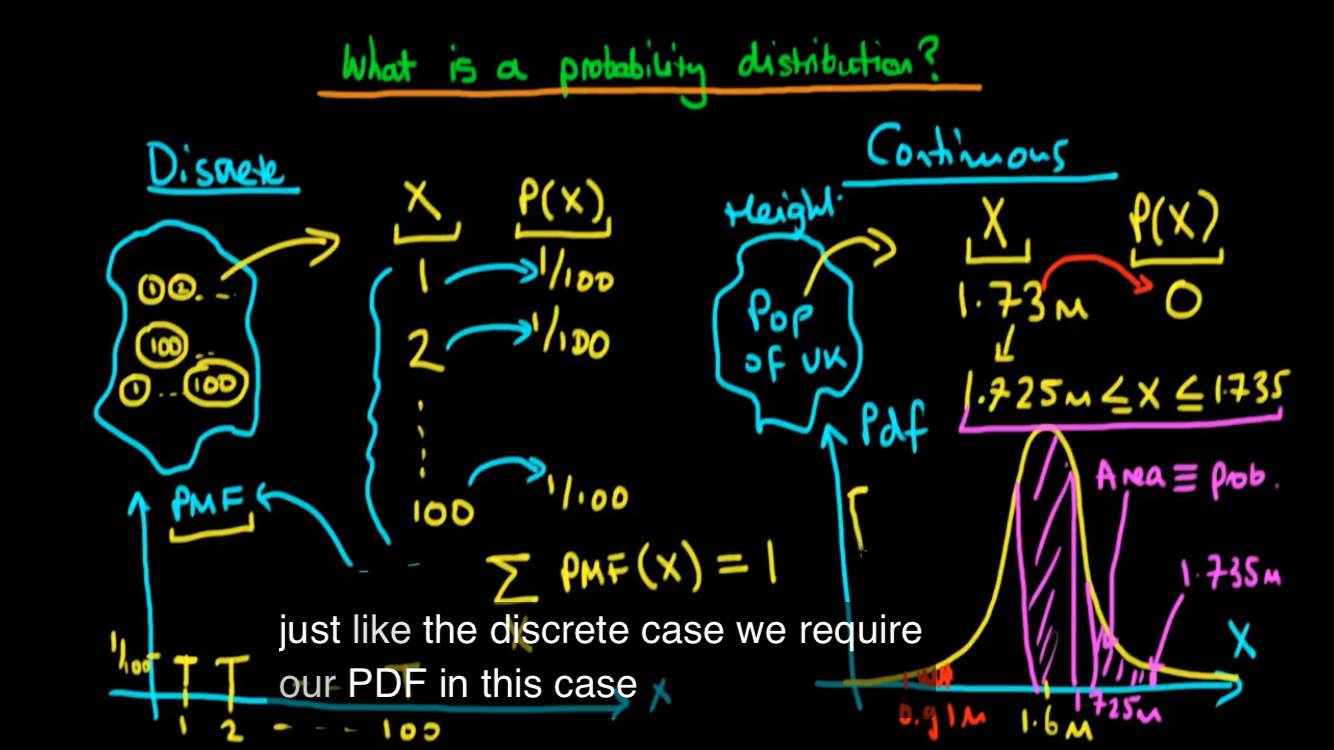 What is a probability distribution?
Discrete
Continuous
X P(X)
1 1/100
2 1/100
100 1/100
1 2 ...
100 ..
1 ... 100
PMF
∑ PMF(X) = 1
1/100
1 2 - - - - 100
X
Height
Pop
of UK
X P(X)
1.73M 0
1.725M ≤ X ≤ 1.735
Pdf
Area ≡ prob.
1.735M
X
0.91M 1.6M 1.725M
just like the discrete case we require
our PDF in this case